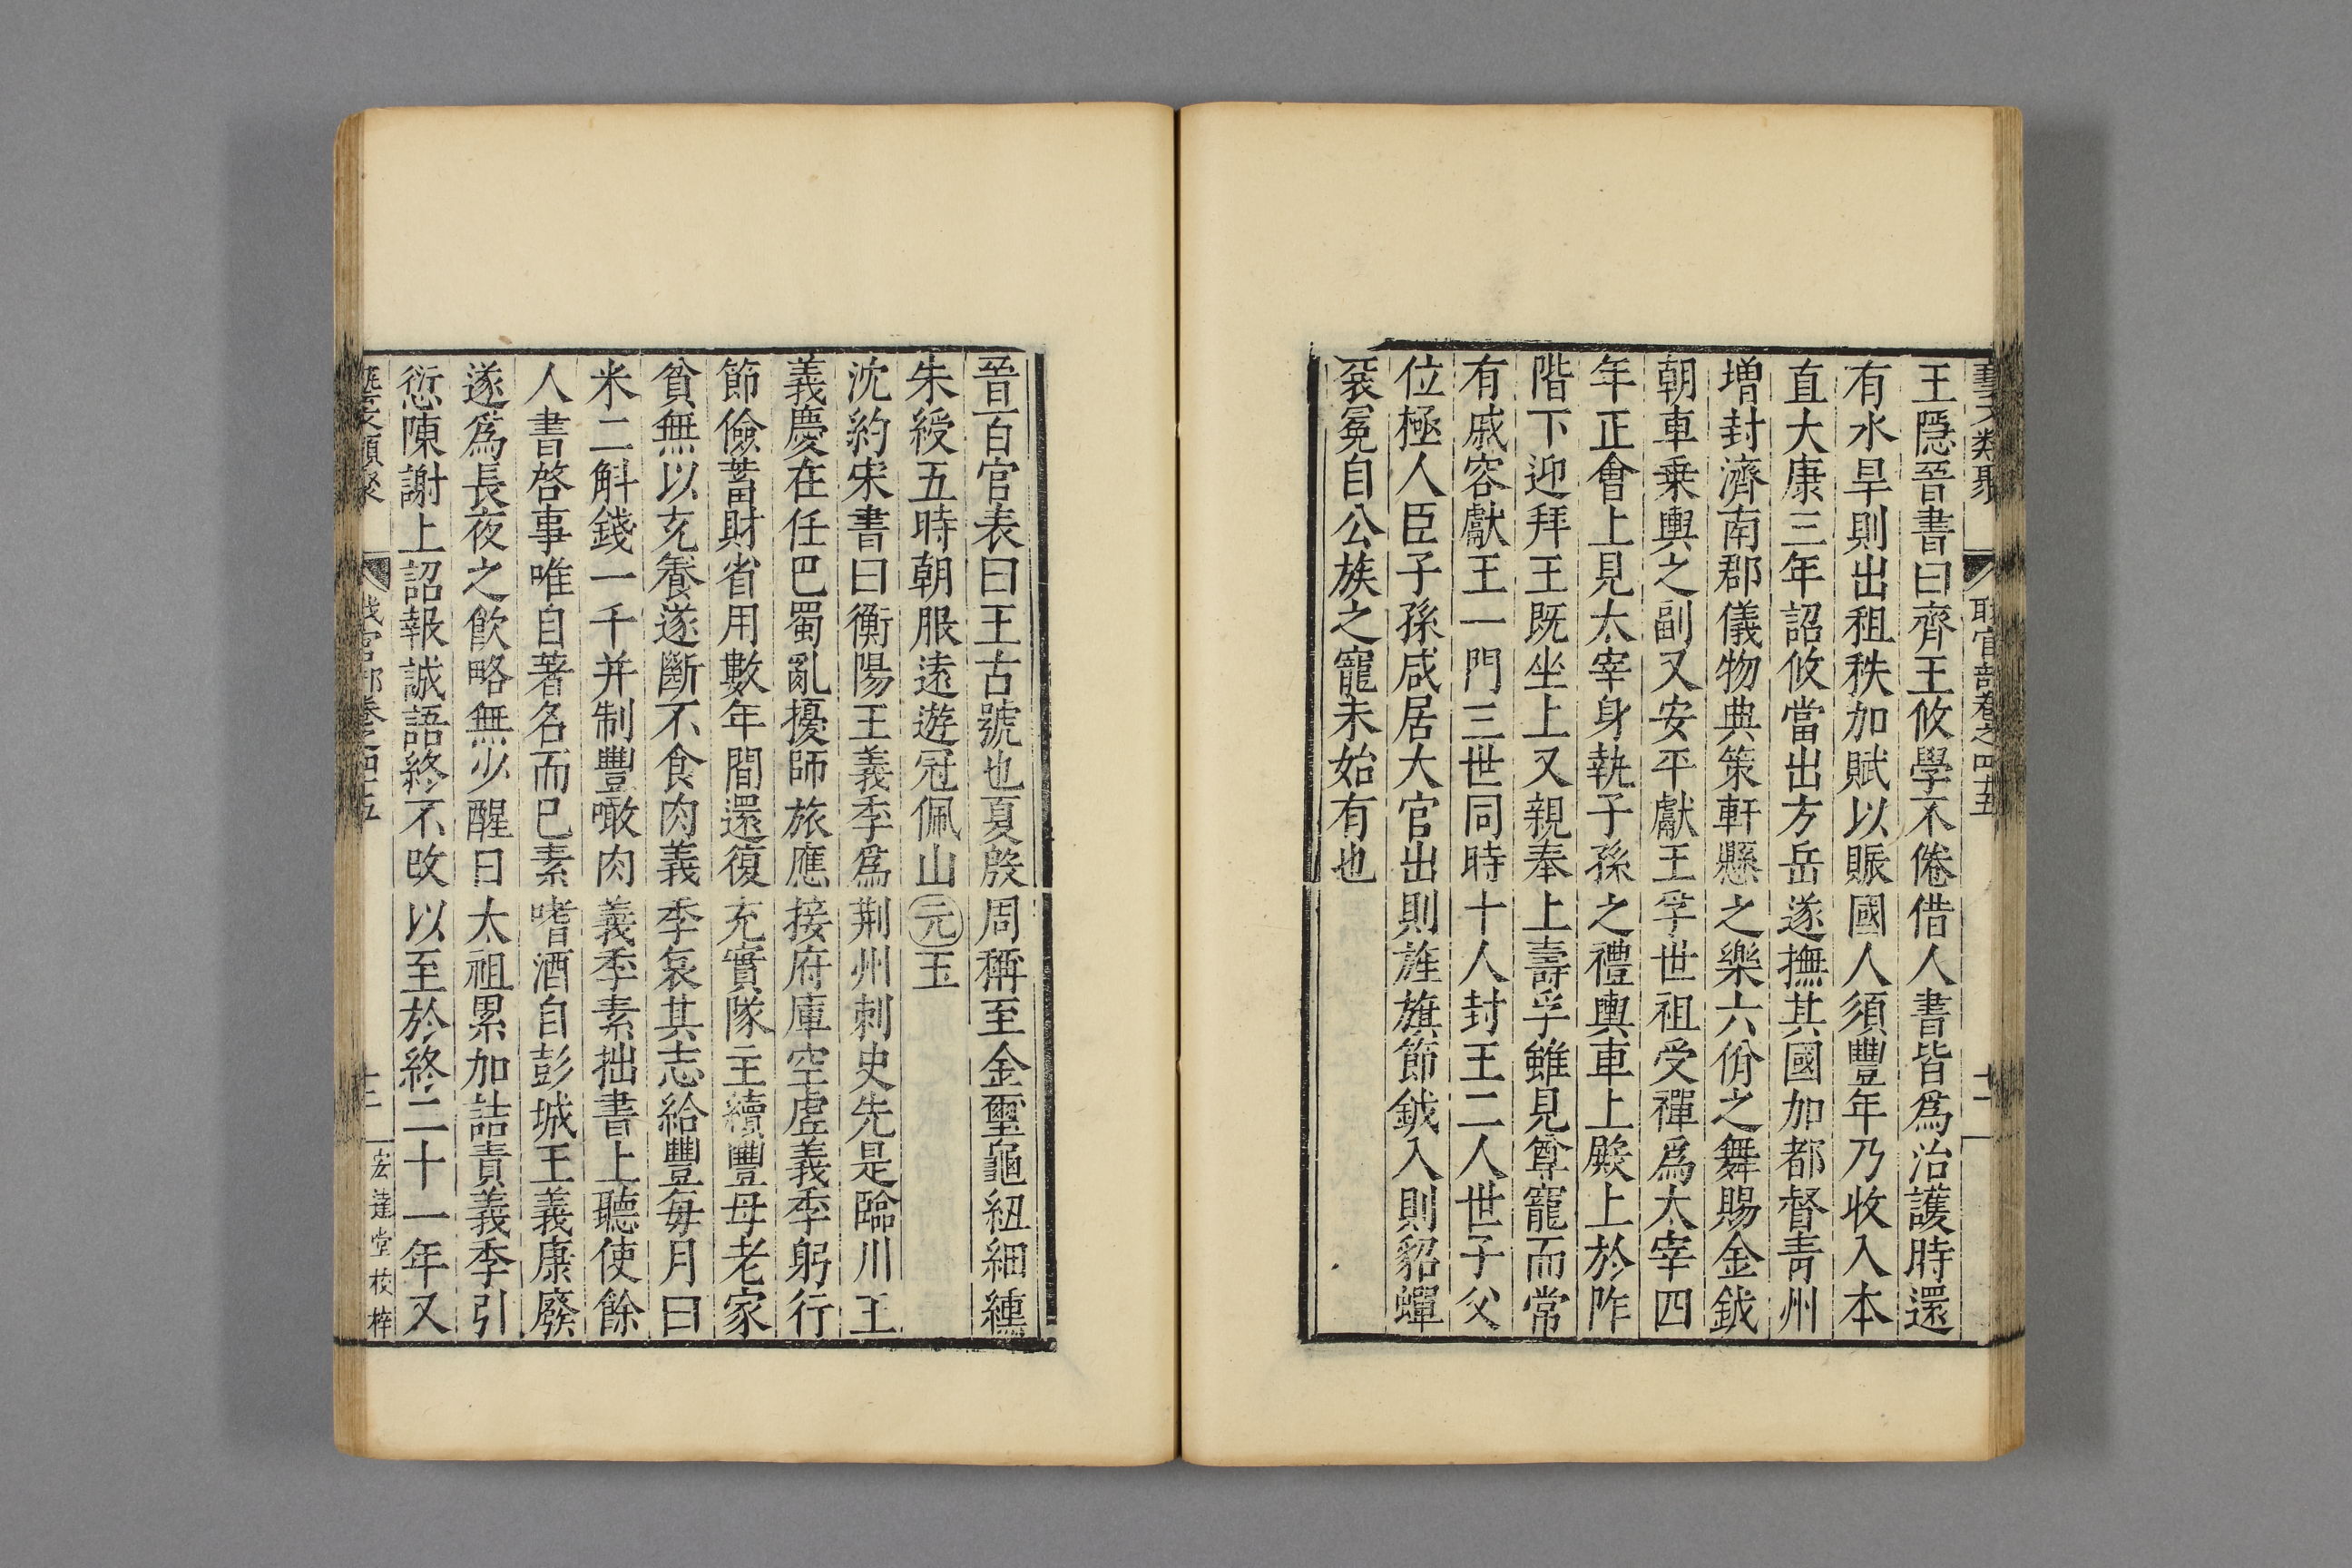 藝文類聚 職官部卷之四十五 十一
王隱晉書曰齊王攸學不倦借人書皆爲治護時還
有水旱則出租秩加賦以賑國人須豐年乃收入本
直大康三年詔攸當出方岳遂撫其國加都督青州
增封濟南郡儀物典策軒懸之樂六佾之舞賜金鉞
朝車乗輿之副又安平獻王孚世祖受禪爲太宰四
年正會上見太宰身執子孫之禮輿車上殿上於阼
階下迎拜王既坐上又親奉上壽孚雖見尊寵而常
有戚容獻王一門三世同時十人封王二人世子父
位極人臣子孫咸居大官出則旌旗節鉞入則貂蟬
衮冕自公族之寵未始有也
晉百官表曰王古號也夏殷周稱至金璽龜紐細纁
朱綬五時朝服遠遊冠佩山元玉
沈約宋書曰衡陽王義季爲荆州刺史先是臨川王
義慶在任巴蜀亂擾師旅應接府庫空虛義季躬行
節儉蓄財省用數年間還復充實隊主續豐母老家
貧無以充養遂斷不食肉義季哀其志給豐每月曰
米二斛錢一千并制豐噉肉義季素拙書上聽使餘
人書啓事唯自著名而已素嗜酒自彭城王義康廢
遂爲長夜之飲略無少醒日太祖累加詰責義季引
愆陳謝上詔報誠語終不改以至於終二十一年又
藝文類聚 職官部卷之四十五 十二 宏達堂校梓